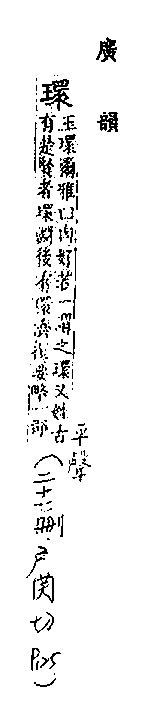 廣韻
環
玉環爾雅曰肉好若一謂之環又姓古
有楚賢者環淵後有環濟撰要略一部
平聲
(二十七刪戶関切 P125)